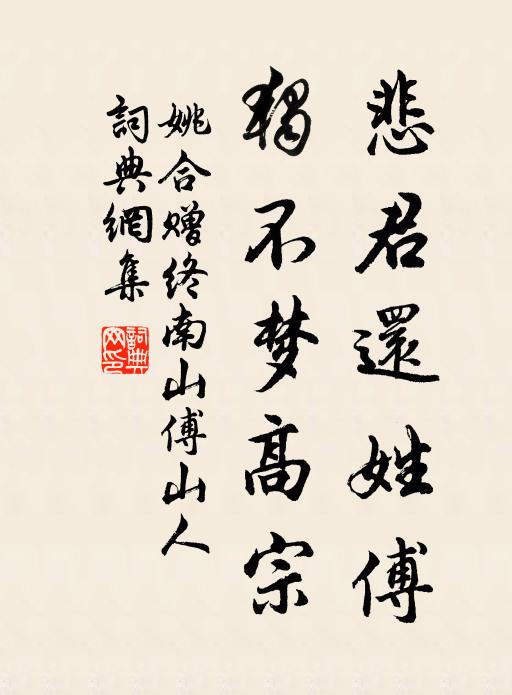 悲君還姓傅
獨不梦高宗
姚合赠终南山傅山人
詞典網集
詞典
网印